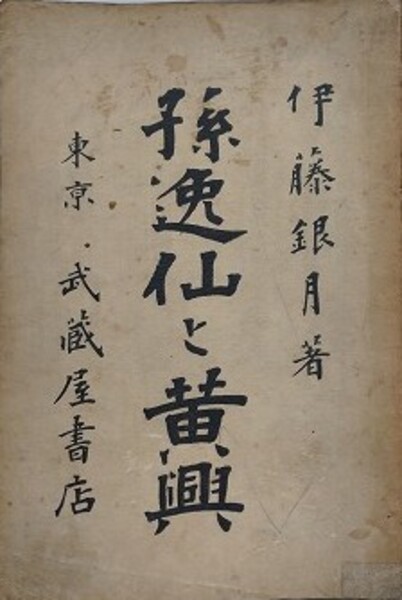 伊藤銀月著
孫逸仙と黄興
東京・武蔵屋書店